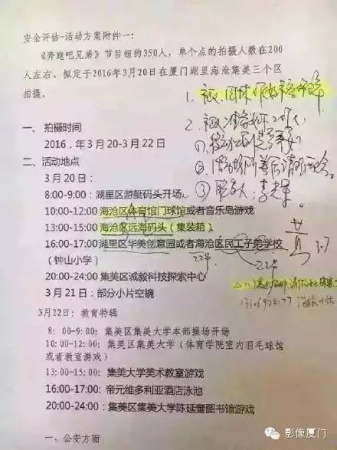 安全评估-活动方案附件一:
《奔跑吧兄弟》节目组约350人，单个点的拍摄人数在200
人左右，拟定于2016年3月20日在厦门湖里海沧集美三个区
拍摄。
一、 拍摄时间
2016，年 3月 20-3月 22日
二、 活动地点
3月 20日：
8:00-9:00：湖里区游艇码头开场
10:00-12:00 海沧区体育馆门球馆或者音乐岛游戏
13:00-15:00 海沧区远海码头（集装箱）
16:00-17:00 湖里区华美创意园或者海沧区民工子弟学校
（钟山小学）
20:00-24:00 集美区诚毅科技探索中心
3月 21日：部分小片空镜
3月22日：教育特辑
8：00-9:00: 集美区集美大学本部操场开场
10:00-12:00: 集美区集美大学（体育学院室内羽毛球馆
或者教室游戏）
13:00-15:00：集美大学美术教室游戏
16:00-17:00：帝元维多利亚酒店泳池
20:00-24:00：集美区集美大学陈延奎图书馆游戏
一、公安方面
影像厦门